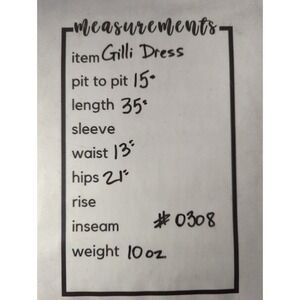 measurements
item Gilli Dress
pit to pit 15"
length 35"
sleeve
waist 13"
hips 21"
rise
inseam # 0308
weight 10 oz